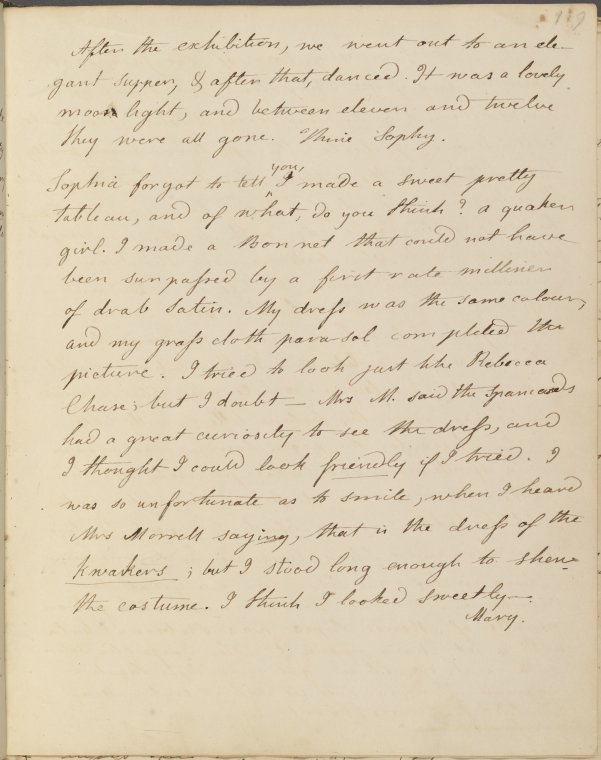 119
After the exhibition, we went out to an ele-
gant supper, & after that, danced. It was a lovely
moon light, and between eleven and twelve
they were all gone. Thine Sophy.
you,
Sophia forgot to tell ‸ I made a sweet pretty
tableau, and of what, do you think? a quaker
girl. I made a Bonnet that could not have
been surpassed by a first rate milliner
of drab satin. My dress was the same colour,
and my grass cloth para-sol completed the
picture. I tried to look just like Rebecca
Chase; but I doubt — Mrs M. said the Spaniards
had a great curiosity to see the dress, and
I thought I could look friendly if I tried. I
was so unfortunate as to smile, when I heard
Mrs Morrell saying, that is the dress of the
Kwakers; but I stood long enough to shew
the costume. I think I looked sweetly—.
Mary.